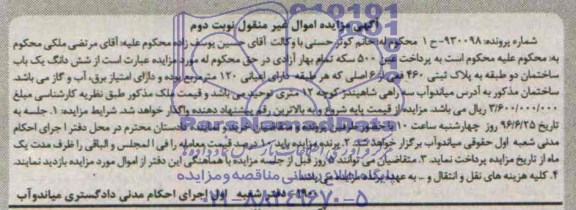 آگهی مزایده اموال غیر منقول نوبت دوم
شماره پرونده: ۹۳۰۰۹۸-ح ۱ محکوم له: خانم کوثر حسنی با وکالت آقای حسین یوسف زاده محکوم علیه: آقای مرتضی ملکی محکوم
به: محکوم علیه محکوم است به پرداخت عین ۵۰۰ سکه تمام بهار آزادی در حق محکوم له مورد مزایده عبارت است از شش دانگ یک باب
ساختمان دو طبقه به پلاک ثبتی ۴۶۰ فرعی ۶ اصلی که هر طبقه دارای اعیانی ۱۲۰ مترمربع بوده و دارای امتیاز برق، آب و گاز می باشد.
ساختمان مذکور به آدرس میاندوآب سه راهی شاهیندژ کوچه ۱۲ متری توحید می باشد و قیمت ملک مذکور طبق نظریه کارشناسی مبلغ
۳/۶۰۰/۰۰۰/۰۰۰ ریال می باشد. مزایده از قیمت پایه شروع و به بالاترین رقم پیشنهاد دهنده واگذار خواهد شد. شرایط مزایده: ۱. جلسه به
تاریخ ۹۶/۶/۲۵ روز چهارشنبه ساعت ۱۰ با حضور و متقاضیان خرید و نماینده دادستان محترم در محل دفتر اجرای احکام
مدنی شعبه اول حقوقی میاندوآب برگزار خواهد شد. ۲. برنده مزایده باید ۱۰ درصد قیمت معامله را فی المجلس و الباقی را ظرف مدت یک
ماه از تاریخ مزایده پرداخت نماید. ۳. متقاضیان می توانند ۵ روز قبل از جلسه مزایده با هماهنگی این دفتر از اموال مورد مزایده بازدید نمایند.
۴. کلیه هزینه های نقل و انتقال و ... به عهده برنده مزایده می باشد.
دفتر شعبه اول اجرای احکام مدنی دادگستری میاندوآب
ParsNamadData
پایگاه اطلاع رسانی مناقصه و مزایده
۰۲۱-۸۸۳۴۹۶۷۰-۵